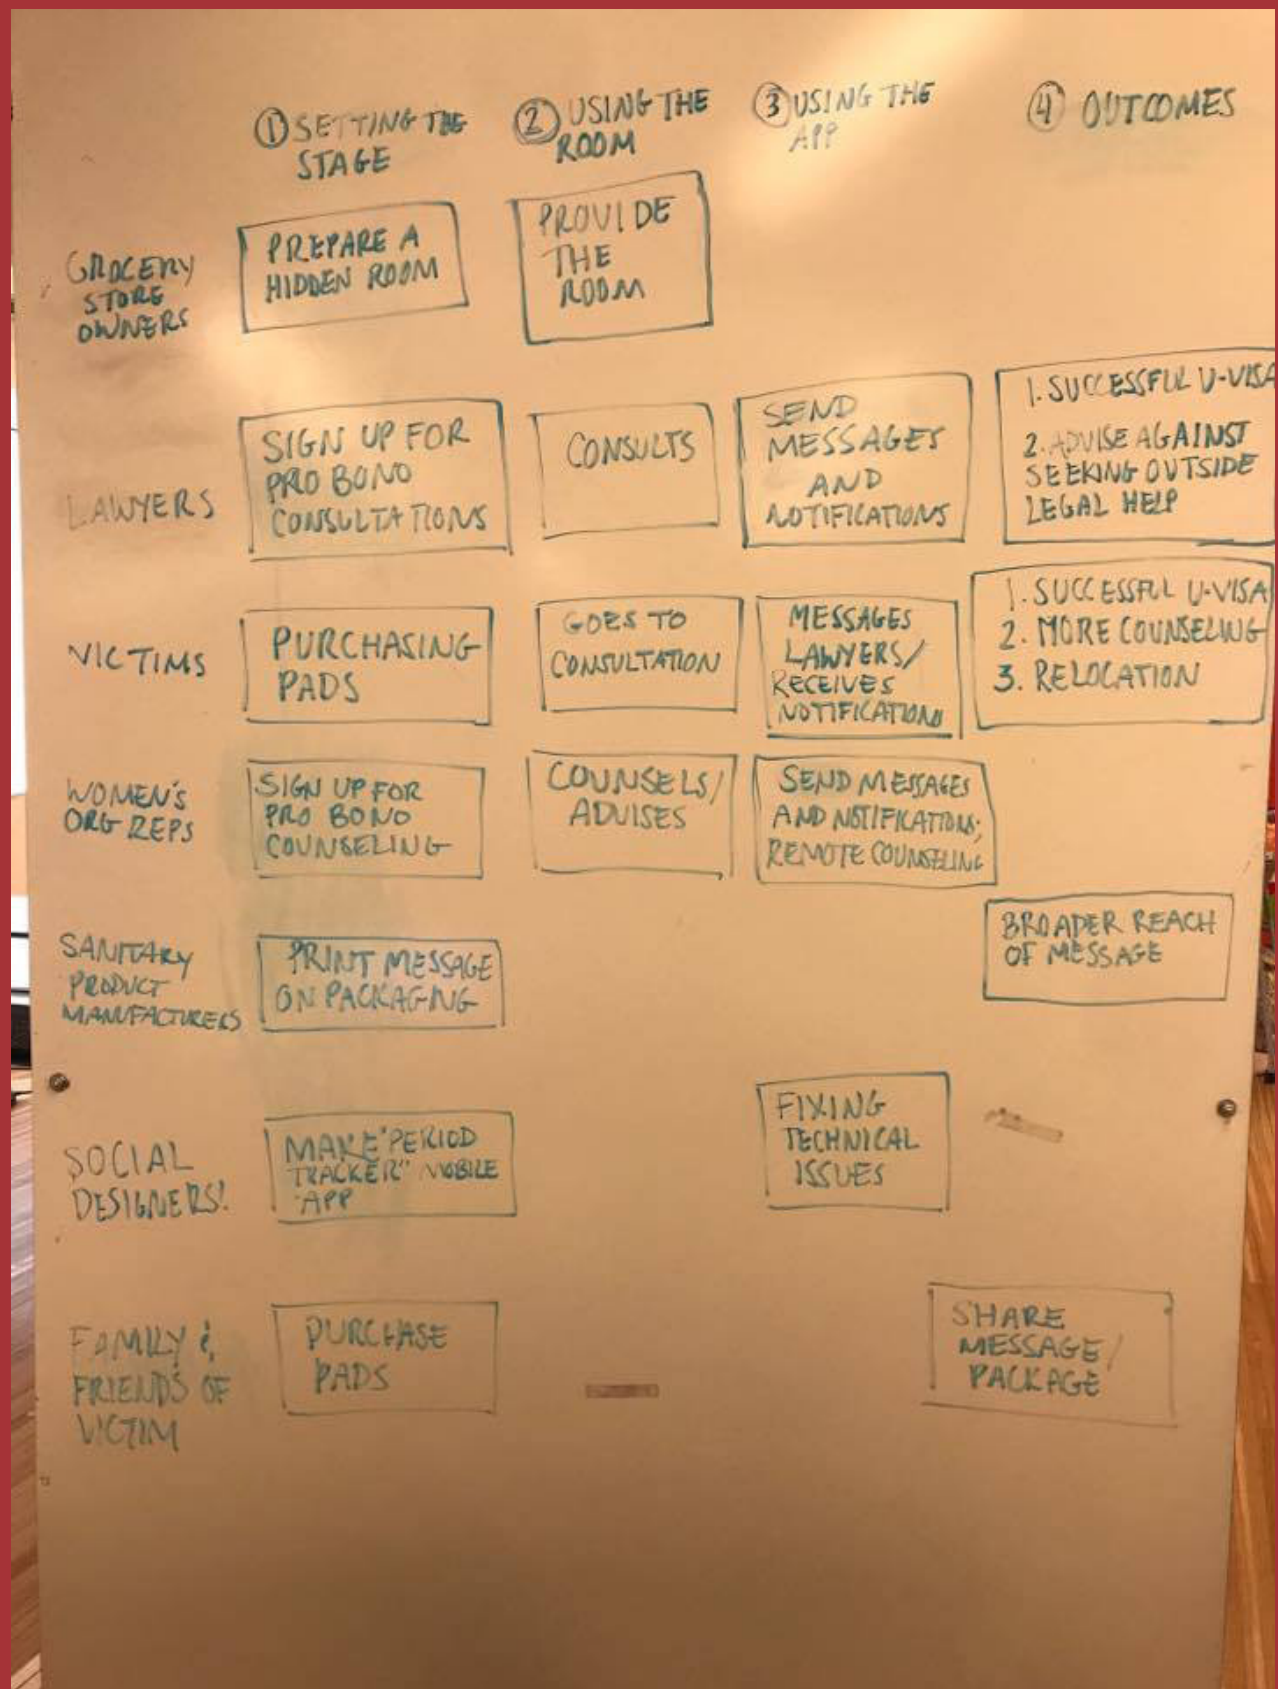 ① SETTING THE
STAGE
② USING THE
ROOM
③ USING THE
APP
④ OUTCOMES
GROCERY
STORE
OWNERS
PREPARE A
HIDDEN ROOM
PROVIDE
THE
ROOM
LAWYERS
SIGN UP FOR
PRO BONO
CONSULTATIONS
CONSULTS
SEND
MESSAGES
AND
NOTIFICATIONS
1. SUCCESSFUL U-VISA
2. ADVISE AGAINST
SEEKING OUTSIDE
LEGAL HELP
VICTIMS
PURCHASING
PADS
GOES TO
CONSULTATION
MESSAGES
LAWYERS/
RECEIVES
NOTIFICATIONS
1. SUCCESSFUL U-VISA
2. MORE COUNSELING
3. RELOCATION
WOMEN'S
ORG REPS
SIGN UP FOR
PRO BONO
COUNSELING
COUNSELS/
ADVISES
SEND MESSAGES
AND NOTIFICATIONS;
REMOTE COUNSELING
SANITARY
PRODUCT
MANUFACTURERS
PRINT MESSAGE
ON PACKAGING
BROADER REACH
OF MESSAGE
SOCIAL
DESIGNERS!
MAKE "PERIOD
TRACKER" MOBILE
APP
FIXING
TECHNICAL
ISSUES
FAMILY &
FRIENDS OF
VICTIM
PURCHASE
PADS
SHARE
MESSAGE/
PACKAGE